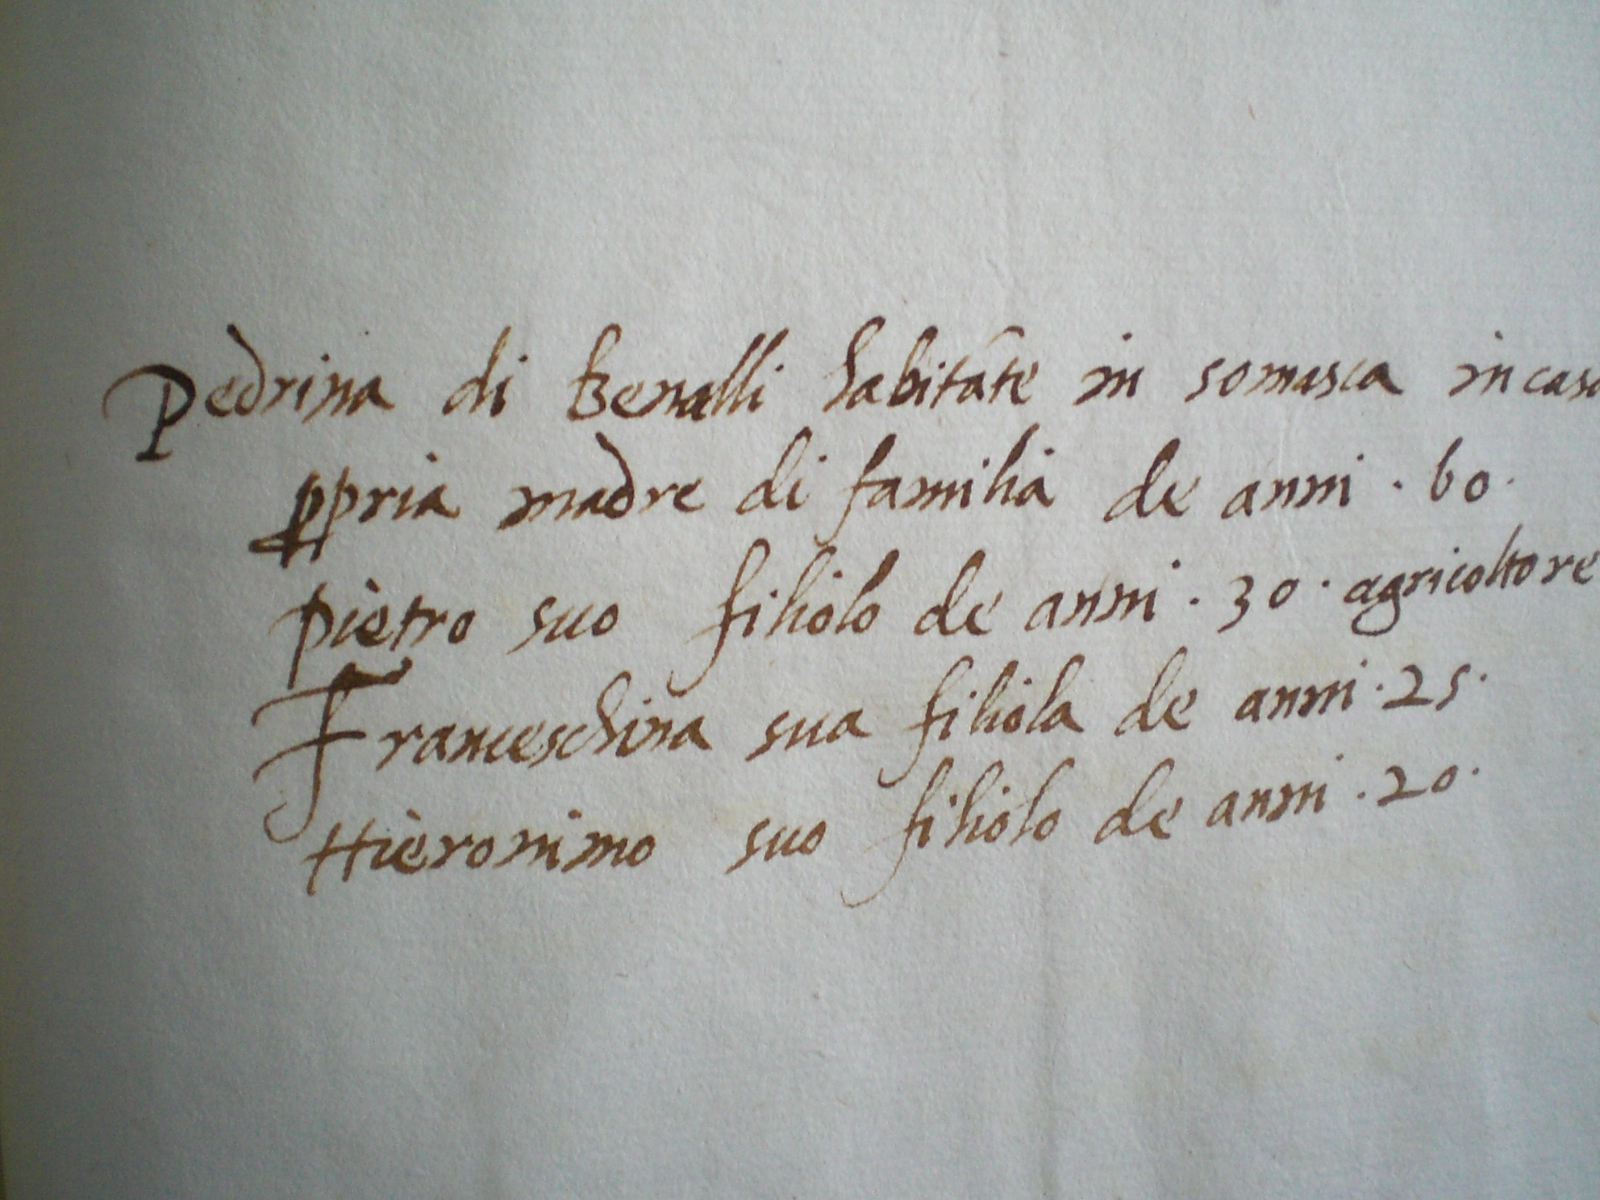 Pedrina di Benalli habitāte in somasca in casa
ꝓpria madre di familia de anni · 60 ·
pietro suo filiolo de anni · 30 · agricoltore
Franceschina sua filiola de anni · 25 ·
Hieronimo suo filiolo de anni · 20 ·